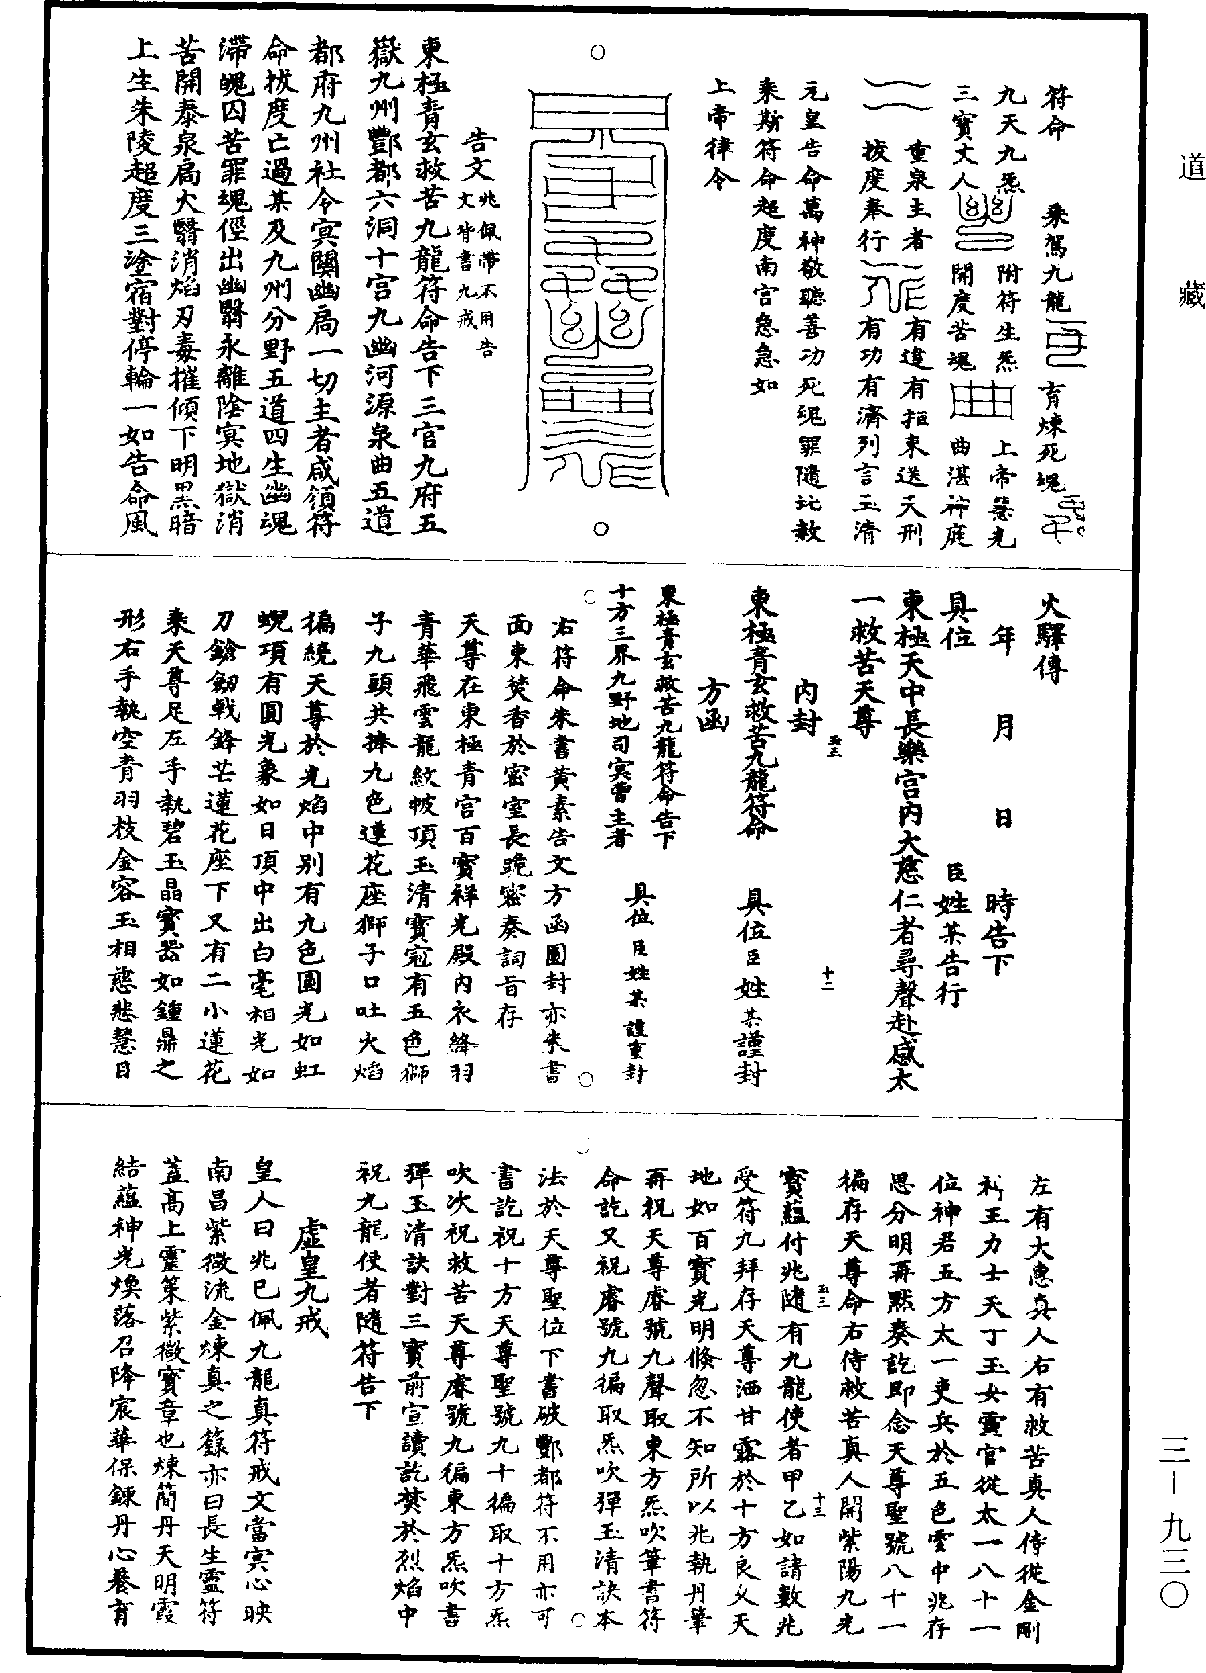 道藏
符命 乘駕九龍 育煉死魂
九天九炁 附符生炁 上帝篆光
三寶丈人 開度苦魂 曲湛神庭
重泉主者 有違有拒束送天刑
拔度奉行 有功有濟列言玉清
元皇告命萬神敬聽善功死魂罪隨比數
乘斯符命超度南宮急急如
上帝律令
告文 兆佩帶不用告
文背書九戒
東極青玄救苦九龍符命告下三官九府五
嶽九州酆都六洞十宮九幽河源泉曲五道
都府九州社令冥關幽扃一切主者咸領符
命拔度亡過某及九州分野五道四生幽魂
滯魄囚苦罪魂徑出幽翳永離陰冥地獄消
苦開泰泉扃火翳消焰刃毒摧傾下明黑暗
上生朱陵超度三塗宿對停輪一如告命風
火驛傳
年 月 日 時告下
具位 臣姓某告行
東極天中長樂宮內大慈仁者尋聲赴感太
一救苦天尊
內封
東極青玄救苦九龍符命 具位臣姓某謹封
方函
東極青玄救苦九龍符命告下
十方三界九野地司冥曹主者 具位臣姓某謹重封
右符命朱書黃素告文方函圓封亦朱書
面東焚香於密室長跪密奏詞旨存
天尊在東極青宮百寶祥光殿內衣絳羽
青華飛雲龍紋帔頂玉清寶冠有五色獅
子九頭共捧九色蓮花座獅子口吐火焰
徧繞天尊於光焰中別有九色圓光如虹
蜺項有圓光象如日頂中出白毫相光如
刀鎗劒戟鋒芒蓮花座下又有二小蓮花
乘天尊足左手執碧玉晶寶器如鍾鼎之
形右手執空青羽枝金容玉相慈悲慧日
左有大惠真人右有救苦真人侍從金剛
神王力士天丁玉女靈官從太一八十一
位神君五方太一吏兵於五色雲中兆存
思分明再默奏訖即念天尊聖號八十一
徧存天尊命右侍救苦真人開紫陽九光
寶蘊付兆隨有九龍使者甲乙如請數兆
受符九拜存天尊洒甘露於十方良久天
地如百寶光明倏忽不知所以兆執丹筆
再祝天尊睿號九聲取東方炁吹筆書符
命訖又祝睿號九徧取炁吹彈玉清訣本
法於天尊聖位下書破酆都符不用亦可
書訖祝十方天尊聖號九十徧取十方炁
吹次祝救苦天尊睿號九徧東方炁吹書
彈玉清訣對三寶前宣讀訖焚於烈焰中
祝九龍使者隨符告下
虛皇九戒
皇人曰兆巳佩九龍真符戒文當冥心映
南昌紫微流金煉真之籙亦曰長生靈符
蓋高上靈策紫微寶章也煉簡丹天明霞
結蘊神光煥落召降宸華保鍊丹心養育
三—九三〇